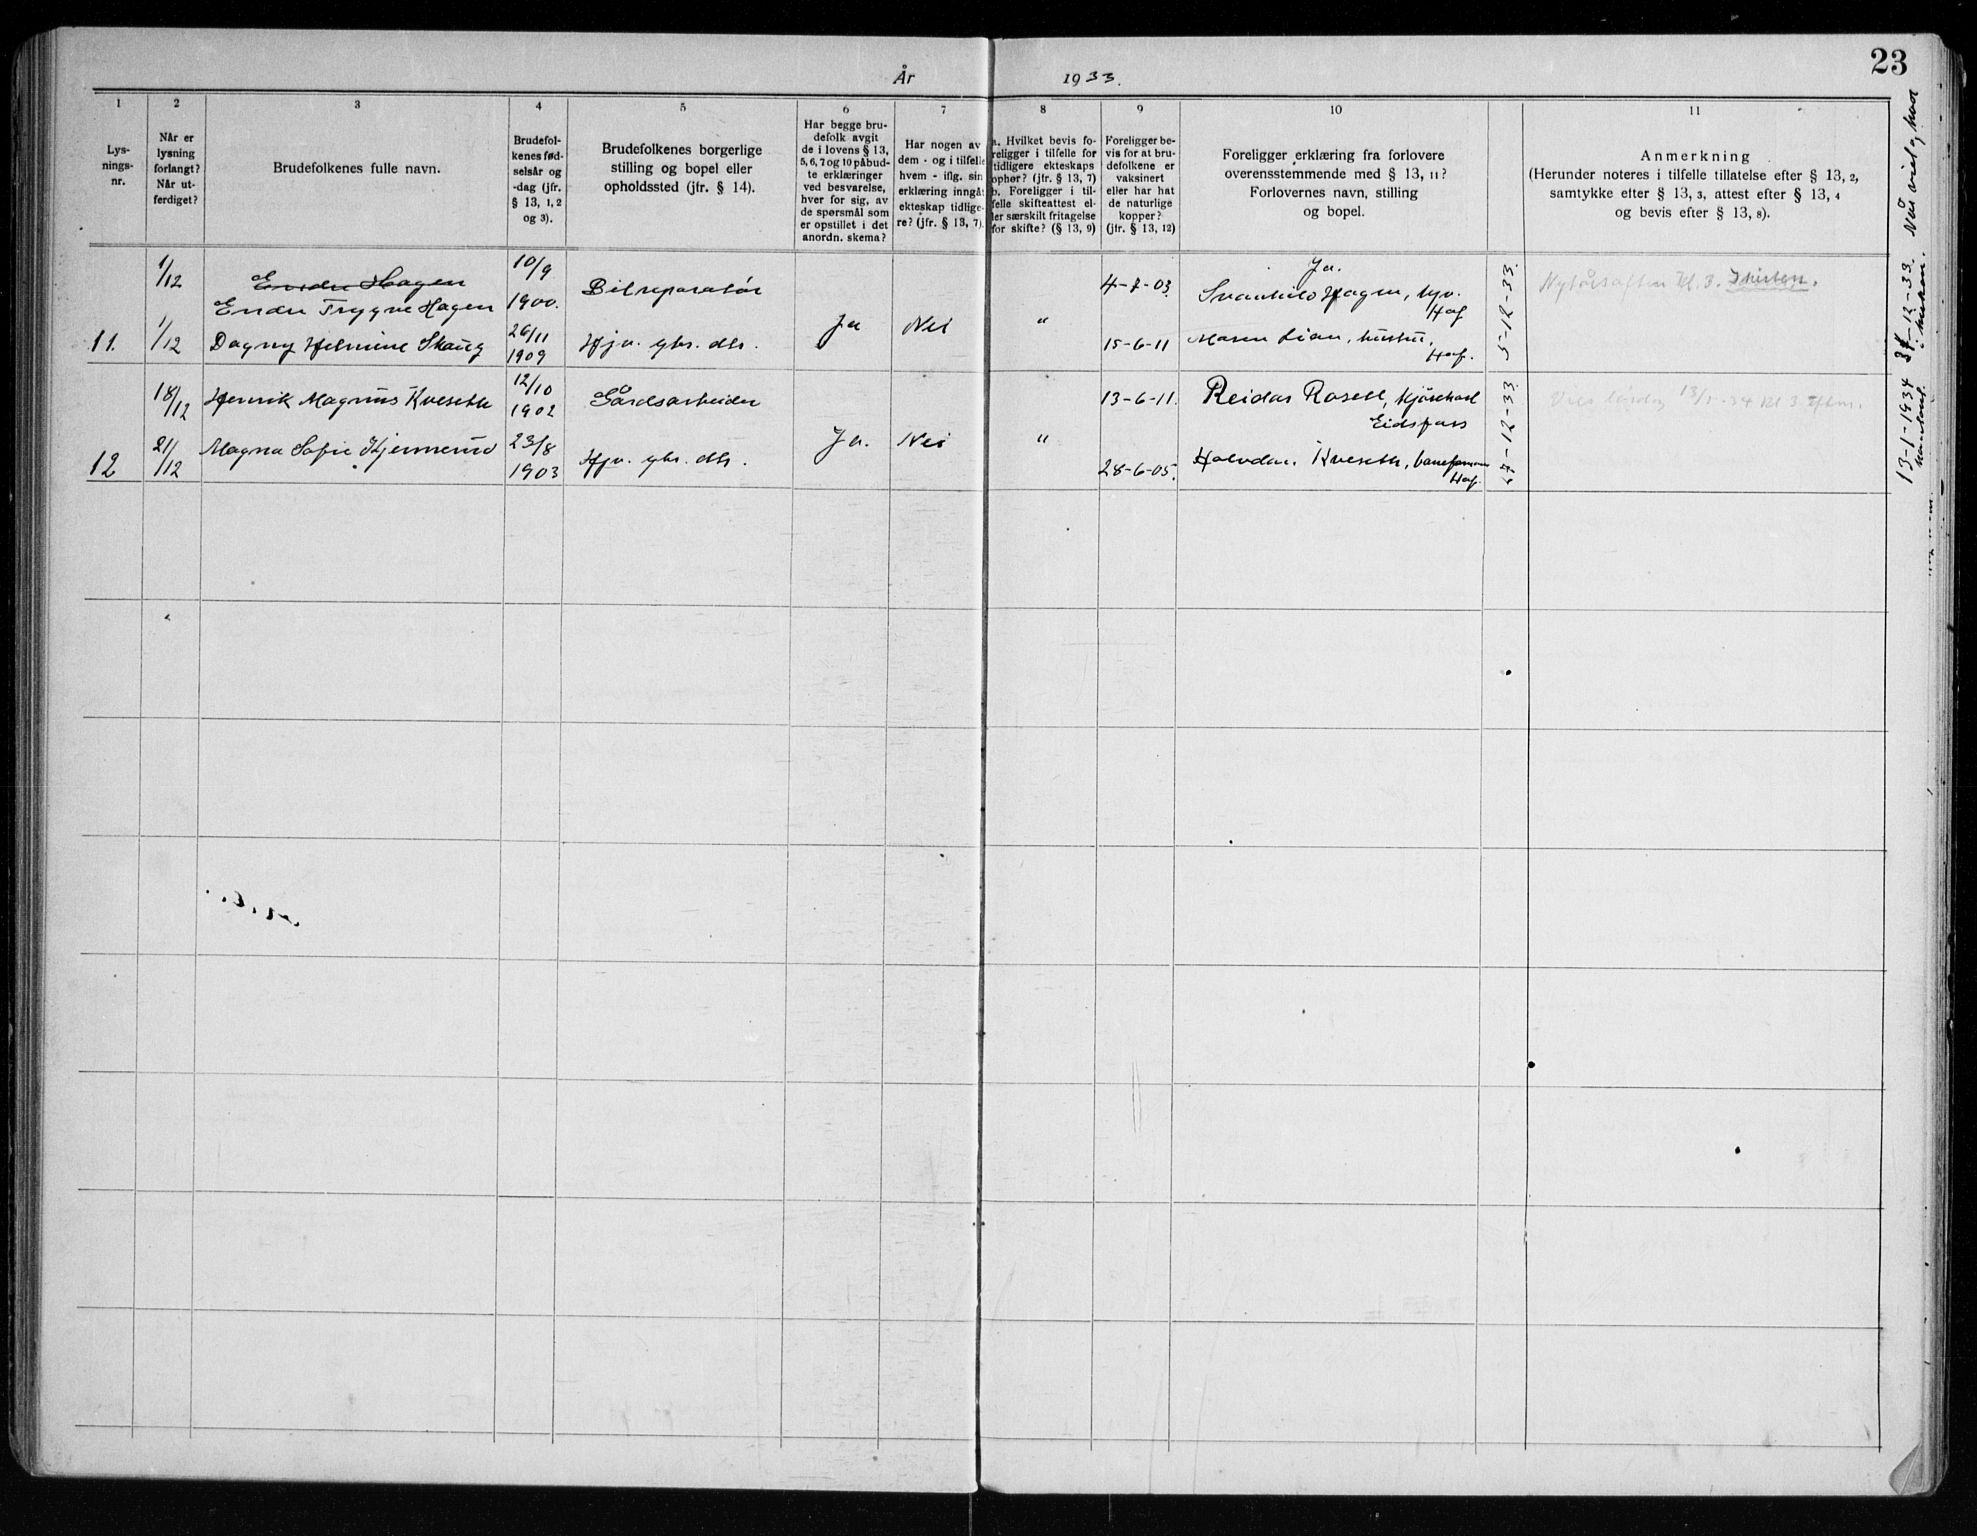 23
År 1933.
1 2 3 4 5 6 7 8 9 10 11
Lys-
nings-
nr.
Når er
lysning
forlangt?
Når ut-
ferdiget?
Brudefolkenes fulle navn.
Brudefol-
kenes fød-
selsår og
-dag (jfr.
§ 13, 1, 2
og 3).
Brudefolkenes borgerlige
stilling og bopel eller
opholdssted (jfr. § 14).
Har begge bru-
defolk avgit
de i lovens § 13,
5, 6, 7 og 10 påbud-
te erklæringer
ved besvarelse,
hver for sig, av
de spørsmål som
er opstillet i det
anordn. skema?
Har nogen av
dem - og i tilfelle
hvem - iflg. sin
erklæring inngåt
ekteskap tidlige-
re? (jfr. § 13, 7).
a. Hvilket bevis fo-
religger i tilfelle for
tidligere ekteskaps
ophør? (jfr. § 13, 7)
b. Foreligger i til-
felle skifteattest el-
ler særskilt fritagelse
for skifte? (§ 13, 9)
Foreligger be-
vis for at bru-
defolkene er
vaksinert
eller har hat
de naturlige
kopper?
(jfr. § 13, 12)
Foreligger erklæring fra forlovere
overensstemmende med § 13, 11?
Forlovernes navn, stilling
og bopel.
Anmerkning
(Herunder noteres i tilfelle tillatelse efter § 13, 2,
samtykke efter § 13, 3, attest efter § 13, 4
og bevis efter § 13, 8).
Når viet og hvor
1/12 Endre Hagen 10/9
Endre Trygve Hagen 1900. Bilreparatør 4-7-03. Ja.
Svanhild Hagen, hjv.
Haf
5-12-33.
Nytårsaften kl. 3. I kirken.
11. 1/12 Dagny Helmine Skaug 26/11
1909 Hjv. gbr. dtr. Ja Nei " 15-6-11 Maren Lian, hustru,
Haf.
-12-33.
kirken.
18/12 Henrik Magnus Kveseth 12/10
1902 Gårdsarbeider 13-6-11. Reidar Rosell,
Eidsfoss
-12-33.
13/1-34 kl 3
12 21/12 Magna Sofie Kjennerud 23/8
1903 Hjv. gbr. dtr. Ja. Nei " 28-6-05. Halvdan Kveseth,
Haf.
13-1-1934